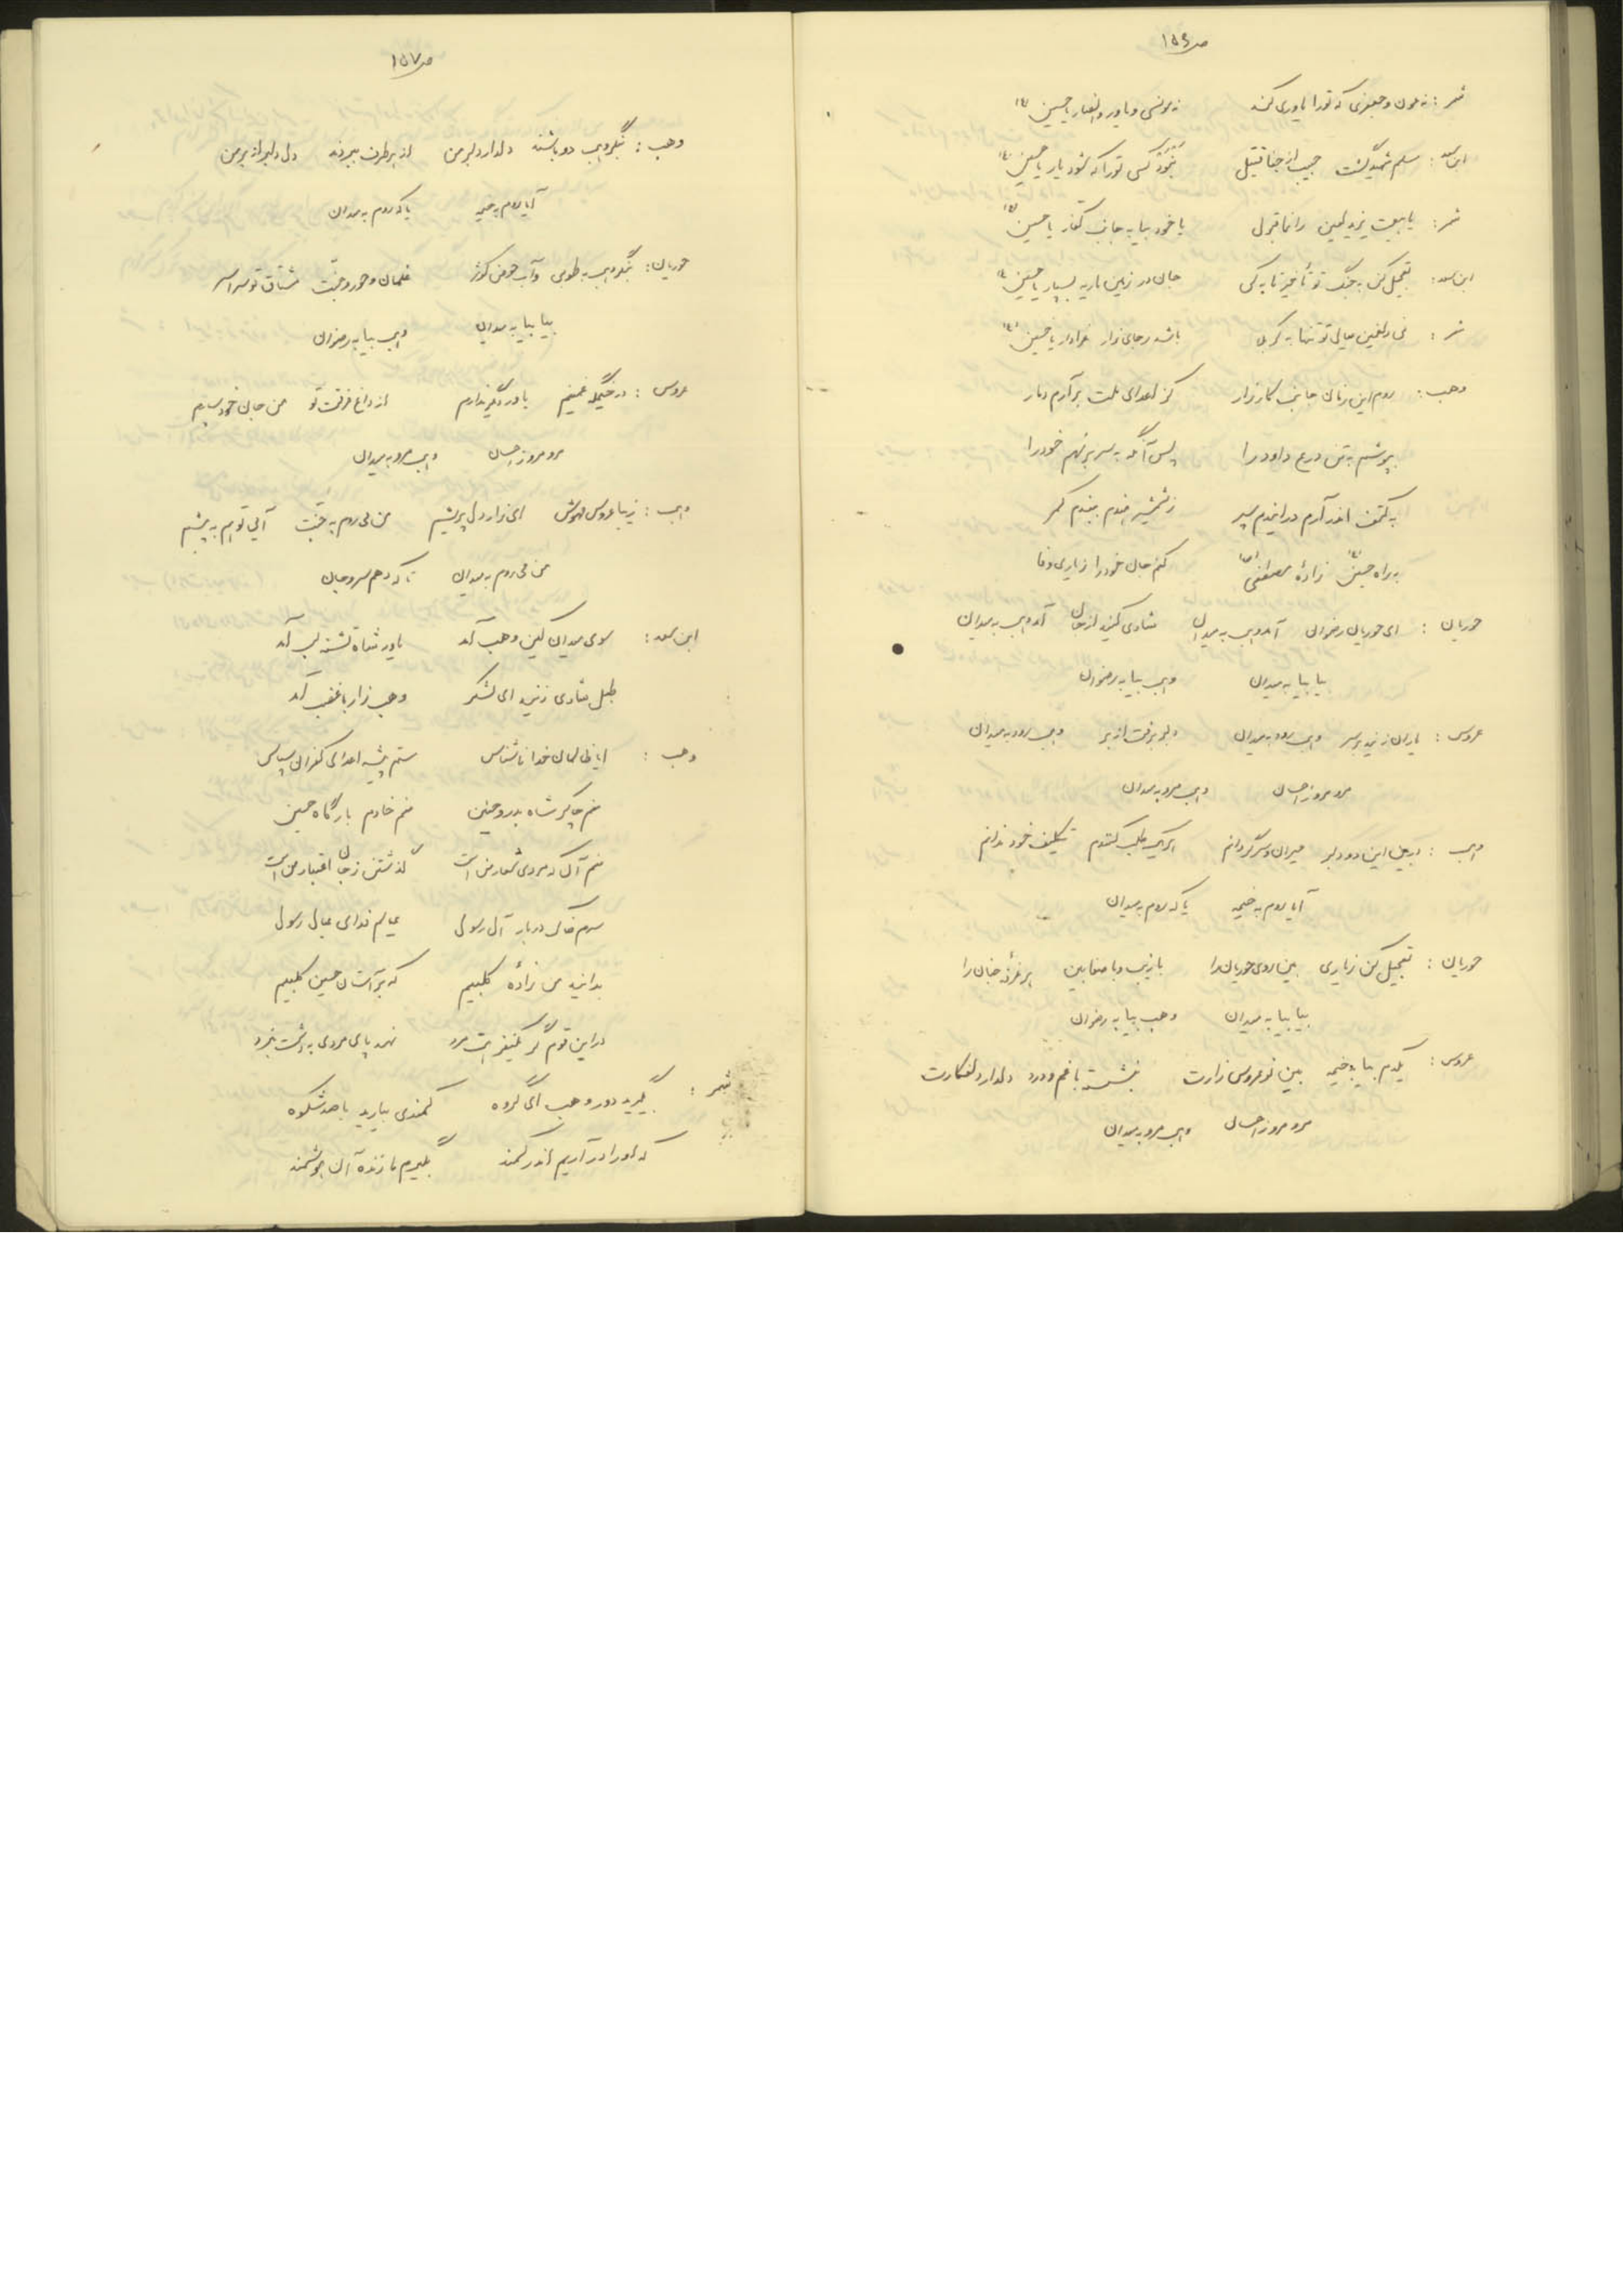 ص ۱۵۶
شمر : نه عون و جعفری که تو را یاوری کند نه مونس و یاور و انصار یا حسین ع
ابن سعد : مسلم شهید گشت حبیب از جفا قتیل نبود کسی تو را که شود یار یا حسین ع
شمر : یا بیعت یزید لعین را نما قبول یا خود بیا به جانب کفار یا حسین ع
ابن سعد : تعجیل کن به جنگ تو تأخیر تا به کی جان در زمین ماریه بسپار یا حسین ع
شمر : تو تنها به کربلا باشد یا حسین ع
وهب : روم این زمان جانب کارزار کز اعدای ملت برآرم دمار
بپوشم به تن درع داود را پس آنگه به سر بر نهم خود را
به کتف اندر آرم در اندم سپر ز شمشیر بندم کمر
به راه حسین ع زادهٔ مصطفی ص کنم جان خود را ز یاری فدا
حوریان : ای حوریان رضوان آمد وهب به میدان شادی کنید از جان آمد وهب به میدان
بیا بیا به میدان وهب بیا به رضوان
عروس : یاران زنید بر سر وهب رود به میدان دلبر برفت از بر وهب رود به میدان
مرو مرو ز احسان وهب مرو به میدان
وهب : این دو دلبر حیران و سرگردانم تکلیف خود ندانم
آیا روم به خیمه یا که روم به میدان
حوریان : تعجیل کن ز یاری بین روی حوریان را با زیب و با صفا بین هر غرفهٔ جنان را
بیا بیا به میدان وهب بیا به رضوان
عروس : یکدم بیا به خیمه بین نوعروس زارت بنشسته با غم و درد دلدار دلفکارت
مرو مرو ز احسان وهب مرو به میدان
ص ۱۵۷
وهب : دو باشند دلدار و دلبر من از هر طرف ببردند دل دلبر از بر من
آیا روم به خیمه یا که روم به میدان
حوریان : بنگر وهب به طوبی و آب حوض کوثر غلمان و حور و جنت مشتاق تو سراسر
بیا بیا به میدان وهب بیا به رضوان
عروس : در خیمگه غمینم یاور دگر ندارم از داغ فرقت تو من جان خود سپارم
مرو مرو ز احسان وهب مرو به میدان
وهب : زیبا عروس مهوش ای زار دل پریشم من می روم به جنت آیی تو هم به پیشم
من می روم به میدان تا که دهم سر و جان
ابن سعد : سوی میدان کین وهب آمد یاور شاه تشنه لب آمد
طبل شادی زنید ای لشکر وهب زار با غضب آمد
وهب : ایا ظالمان خدا ناشناس ستم پیشه اعدای کفران سپاس
منم چاکر شاه بدر و حنین منم خادم بارگاه حسین
منم آنکه مردی شعار من است گذشتن ز جان اعتبار من است
سرم خاک دربار آل رسول عیالم فدای عیال رسول
بدانید من زادهٔ کلبیم که بر آستان حسین کلبیم
در این قوم گر یکنفر هست مرد نهد پای مردی به دشت نبرد
شمر : بگیرید دور وهب ای گروه کمندی بیارید با صد شکوه
که او را درآریم اندر کمند بگیریم ما زنده آن هوشمند